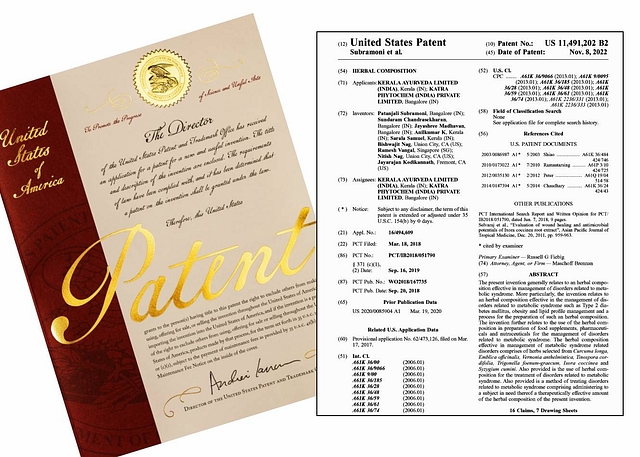 To Promote the Progress
of Science and Useful Arts
The Director
of the United States Patent and Trademark Office has received
an application for a patent for a new and useful invention. The title
and description of the invention are enclosed. The requirements
of law have been complied with, and it has been determined that
a patent on the invention shall be granted under the law.
Therefore, this United States
United
States
of
America
Patent
grants to the person(s) having title to this patent the right to exclude others from making,
Maintenance Fee Notice on the inside of the cover.
Director of the United States Patent and Trademark
(12) United States Patent
Subramoni et al.
(10) Patent No.: US 11,491,202 B2
(45) Date of Patent: Nov. 8, 2022
(54) HERBAL COMPOSITION
(71) Applicants: KERALA AYURVEDA LIMITED
(INDIA), Kerala (IN); KATRA
PHYTOCHEM (INDIA) PRIVATE
LIMITED, Bangalore (IN)
(72) Inventors: Patanjali Subramoni, Bangalore (IN);
Sundaram Chandrasekharan,
Bangalore (IN); Jayashree Madhavan,
Bangalore (IN); Anilkumar K, Kerala
(IN); Sarala Samuel, Kerala (IN);
Bishwajit Nag, Union City, CA (US);
Ramesh Vangal, Singapore (SG);
Nitish Nag, Union City, CA (US);
Jayarajan Kodikannath, Fremont, CA
(US)
(73) Assignees: KERALA AYURVEDA LIMITED
(INDIA), Kerala (IN); KATRA
PHYTOCHEM (INDIA) PRIVATE
LIMITED, Bangalore (IN)
( * ) Notice: Subject to any disclaimer, the term of this
patent is extended or adjusted under 35
U.S.C. 154(b) by 0 days.
(21) Appl. No.: 16/494,609
(22) PCT Filed: Mar. 18, 2018
(86) PCT No.: PCT/IB2018/051790
§ 371 (c)(1),
(2) Date: Sep. 16, 2019
(87) PCT Pub. No.: WO2018/167735
PCT Pub. Date: Sep. 20, 2018
(65) Prior Publication Data
US 2020/0085904 A1 Mar. 19, 2020
Related U.S. Application Data
(60) Provisional application No. 62/473,126, filed on Mar.
17, 2017.
(51) Int. Cl.
A61K 36/00 (2006.01)
A61K 36/9066 (2006.01)
A61K 9/00 (2006.01)
A61K 36/185 (2006.01)
A61K 36/28 (2006.01)
A61K 36/48 (2006.01)
A61K 36/59 (2006.01)
A61K 36/61 (2006.01)
A61K 36/74 (2006.01)
(52) U.S. Cl.
CPC ..... A61K 36/9066 (2013.01); A61K 9/0095
(2013.01); A61K 36/185 (2013.01); A61K
36/28 (2013.01); A61K 36/48 (2013.01); A61K
36/59 (2013.01); A61K 36/61 (2013.01); A61K
36/74 (2013.01); A61K 2236/331 (2013.01);
A61K 2236/333 (2013.01)
(58) Field of Classification Search
None
See application file for complete search history.
(56) References Cited
U.S. PATENT DOCUMENTS
OTHER PUBLICATIONS
PCT International Search Report and Written Opinion for PCT/
IB2018/051790, dated Jun. 7, 2018, 9 pages.
* cited by examiner
Primary Examiner — Russell G Fiebig
(74) Attorney, Agent, or Firm — Maschoff Brennan
(57) ABSTRACT
The present invention generally relates to an herbal compo-
sition effective in management of disorders related to meta-
bolic syndrome. More particularly, the invention relates to
an herbal composition effective in the management of dis-
orders related to metabolic syndrome such as Type 2 dia-
betes mellitus, obesity and lipid profile management and a
process for the preparation of such an herbal composition.
The invention further relates to the use of the herbal com-
position in preparation of food supplements, pharmaceuti-
cals and nutraceuticals for the management of disorders
related to metabolic syndrome. The herbal composition
effective in management of metabolic syndrome related
disorders comprises of herbs selected from Curcuma longa,
Emblica officinalis, Vernonia anthelmintica, Tinospora cor-
difolia, Trigonella foenum-graecum, Ixora coccinea and
Syzygium cumini. Also provided is the use of herbal com-
position for the treatment of disorders related to metabolic
syndrome. Also provided is a method of treating disorders
related to metabolic syndrome comprising administering to
a subject in need thereof a therapeutically effective amount
of the herbal composition of the present invention.
16 Claims, 7 Drawing Sheets